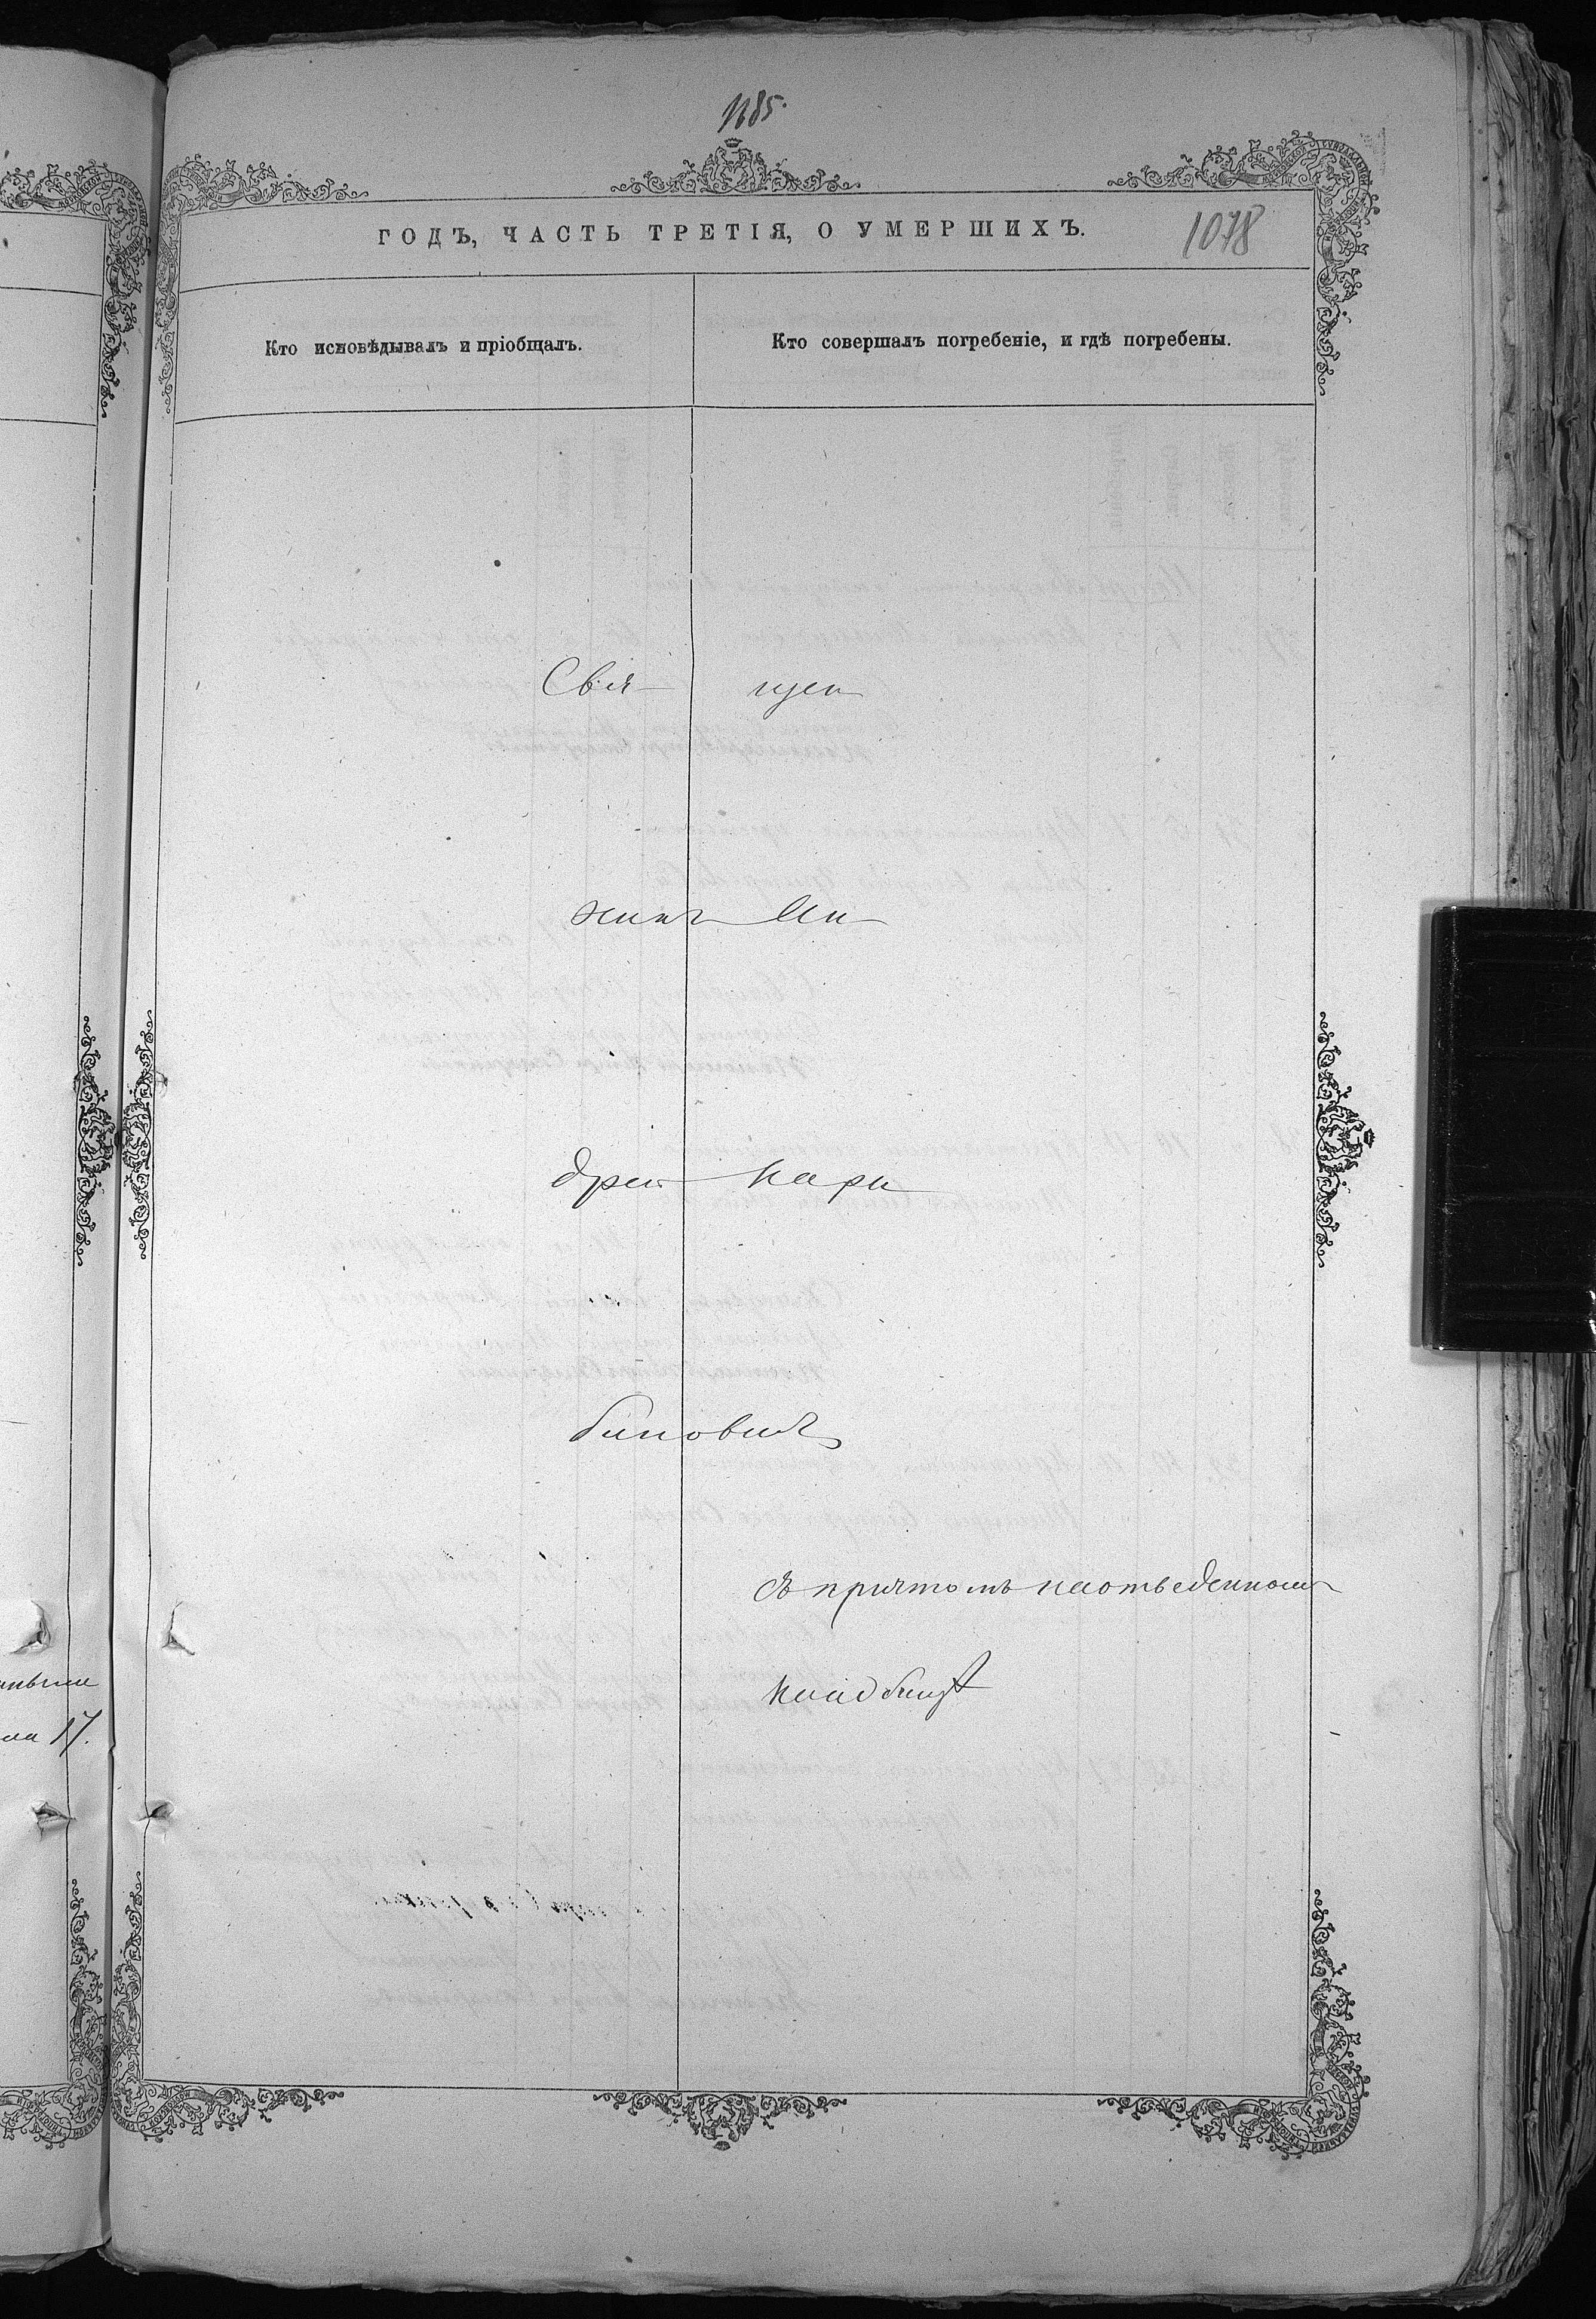 1185.
ГОДЪ, ЧАСТЬ ТРЕТІЯ, О УМЕРШИХЪ.
1078
Кто исповѣдывалъ и пріобщалъ.
Кто совершалъ погребеніе, и гдѣ погребены.
Свя щен
никъ Ан
дрей Кари
биновичъ
съ причтомъ на отведенномъ
кладбищѣ
17.